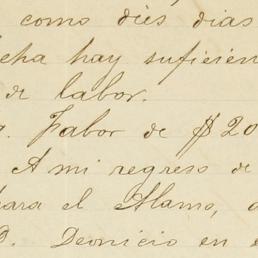 como diés dias
echa hay suficien
de labor.
Fabor de $20
A mi regreso de
para el Alamo,
D. Deonicio en